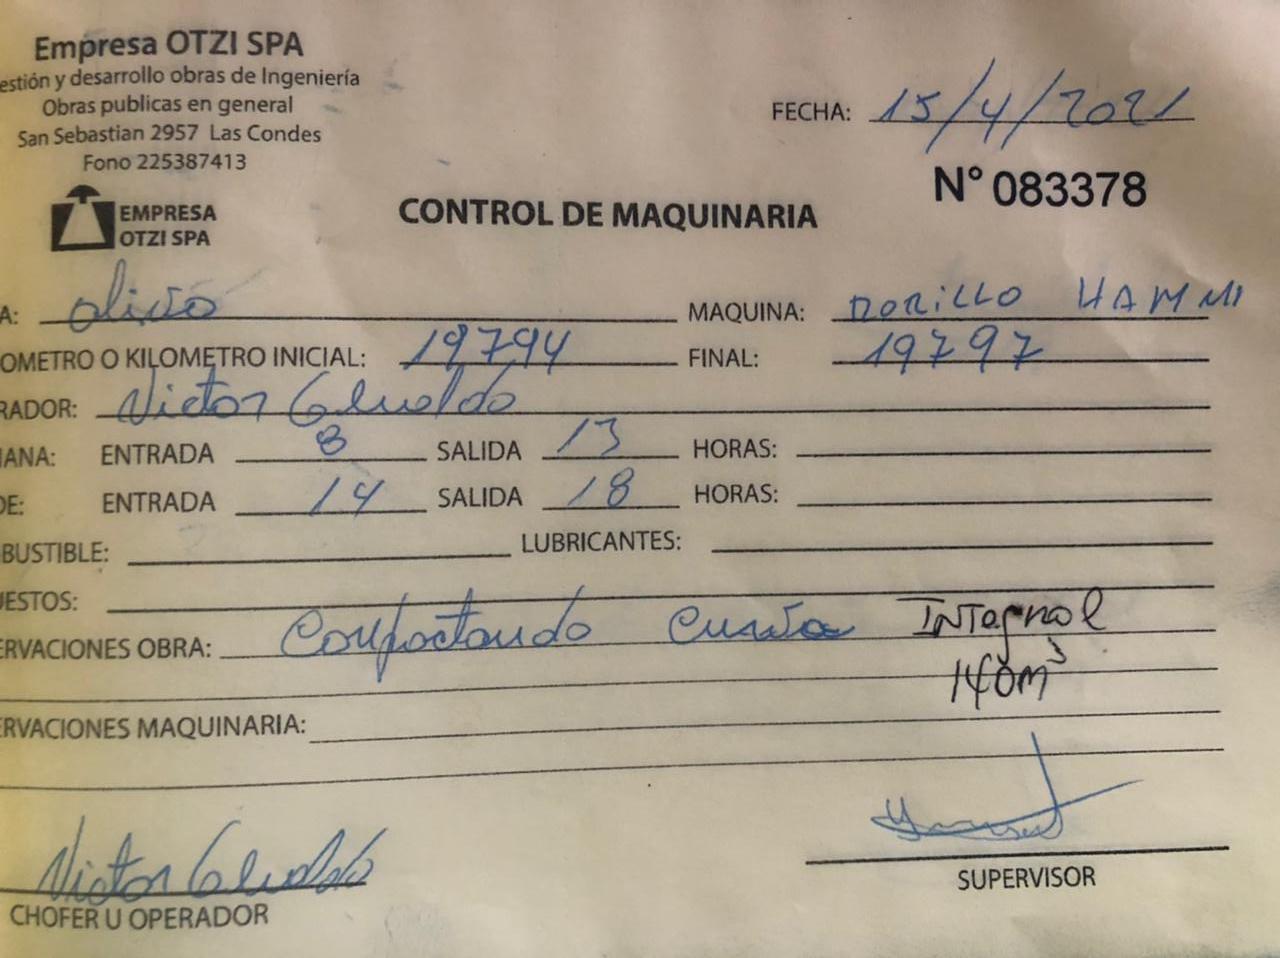 Empresa OTZI SPA
estión y desarrollo obras de Ingeniería
Obras publicas en general
San Sebastian 2957 Las Condes
Fono 225387413
FECHA: 15/4/2021
N° 083378
EMPRESA
OTZI SPA
CONTROL DE MAQUINARIA
A: olivo MAQUINA: RORILLO HAMM
OMETRO O KILOMETRO INICIAL: 19794 FINAL: 19797
RADOR: Victor
ANA: ENTRADA 8 SALIDA 13 HORAS:
DE: ENTRADA 14 SALIDA 18 HORAS:
BUSTIBLE: LUBRICANTES:
UESTOS:
ERVACIONES OBRA: Conpactando Curva INTegral
140m³
ERVACIONES MAQUINARIA:
Victor
CHOFER U OPERADOR
SUPERVISOR